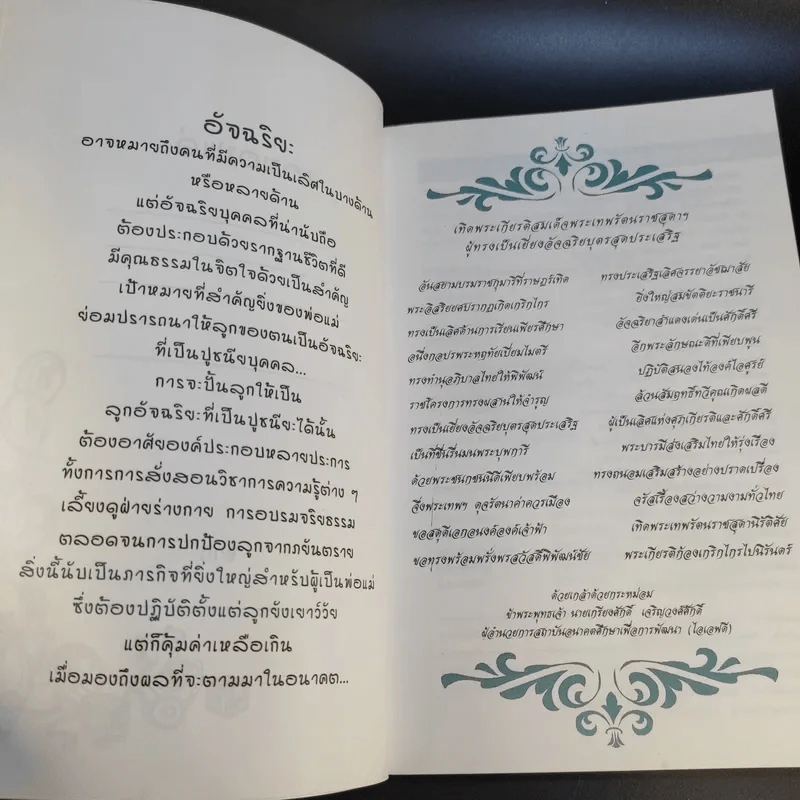 อัจฉริยะ
อาจหมายถึงคนที่มีความเป็นเลิศในบางด้าน
หรือหลายด้าน
แต่อัจฉริยบุคคลที่น่านับถือ
ต้องประกอบด้วยรากฐานชีวิตที่ดี
มีคุณธรรมในจิตใจด้วยเป็นสำคัญ
เป้าหมายที่สำคัญยิ่งของพ่อแม่
ย่อมปรารถนาให้ลูกของตนเป็นอัจฉริยะ
ที่เป็นปูชนียบุคคล...
การจะปั้นลูกให้เป็น
ลูกอัจฉริยะที่เป็นปูชนียะได้นั้น
ต้องอาศัยองค์ประกอบหลายประการ
ทั้งการการสั่งสอนวิชาการความรู้ต่าง ๆ
เลี้ยงดูฝ่ายร่างกาย การอบรมจริยธรรม
ตลอดจนการปกป้องลูกจากภยันตราย
สิ่งนี้นับเป็นภารกิจที่ยิ่งใหญ่สำหรับผู้เป็นพ่อแม่
ซึ่งต้องปฏิบัติตั้งแต่ลูกยังเยาว์วัย
แต่ก็คุ้มค่าเหลือเกิน
เมื่อมองถึงผลที่จะตามมาในอนาคต...
เทิดพระเกียรติสมเด็จพระเทพรัตนราชสุดาฯ
ผู้ทรงเป็นเยี่ยงอัจฉริยบุตรสุดประเสริฐ
อันสยามบรมราชกุมารีที่ราษฎร์เทิด ทรงประเสริฐเลิศจรรยาอัชฌาสัย
พระอิสริยยศปรากฏเกิดเกริกไกร ยิ่งใหญ่สมขัตติยะราชนารี
ทรงเป็นเลิศด้านการเรียนเพียรศึกษา อัจฉริยาสำแดงเด่นเป็นศักดิ์ศรี
อนึ่งกอปรพระหฤทัยเปี่ยมไมตรี อีกพระลักษณะดีที่เพียบพูน
ทรงทำนุอภิบาลไทยให้พิพัฒน์ ปฏิบัติสนองไท้องค์ไอศูรย์
ราชโครงการทรงผสานให้จำรูญ ล้วนสัมฤทธิ์ทวีคุณเกิดผลดี
ทรงเป็นเยี่ยงอัจฉริยบุตรสุดประเสริฐ ผู้เป็นเลิศแห่งศุภเกียรติและศักดิ์ศรี
เป็นที่ชื่นรื่นมนพระบุพการี พระบารมีส่งเสริมไทยให้รุ่งเรือง
ด้วยพระชนกชนนีดีเพียบพร้อม ทรงถนอมเสริมสร้างอย่างปราดเปรื่อง
ซึ่งพระเทพฯ ดุจรัตนาค่าควรเมือง จรัสเรืองสว่างวามงามทั่วไทย
ขอสดุดีเอกอนงค์องค์เจ้าฟ้า เทิดพระเทพรัตนราชสุดานิรัติศัย
ขอทรงพร้อมพรั่งพรสวัสดิ์พิพัฒน์ชัย พระเกียรติก้องเกริกไกรไปนิรันดร์
ด้วยเกล้าด้วยกระหม่อม
ข้าพระพุทธเจ้า นายเกรียงศักดิ์ เจริญวงศ์ศักดิ์
ผู้อำนวยการสถาบันอนาคตศึกษาเพื่อการพัฒนา (ไอเอฟดี)